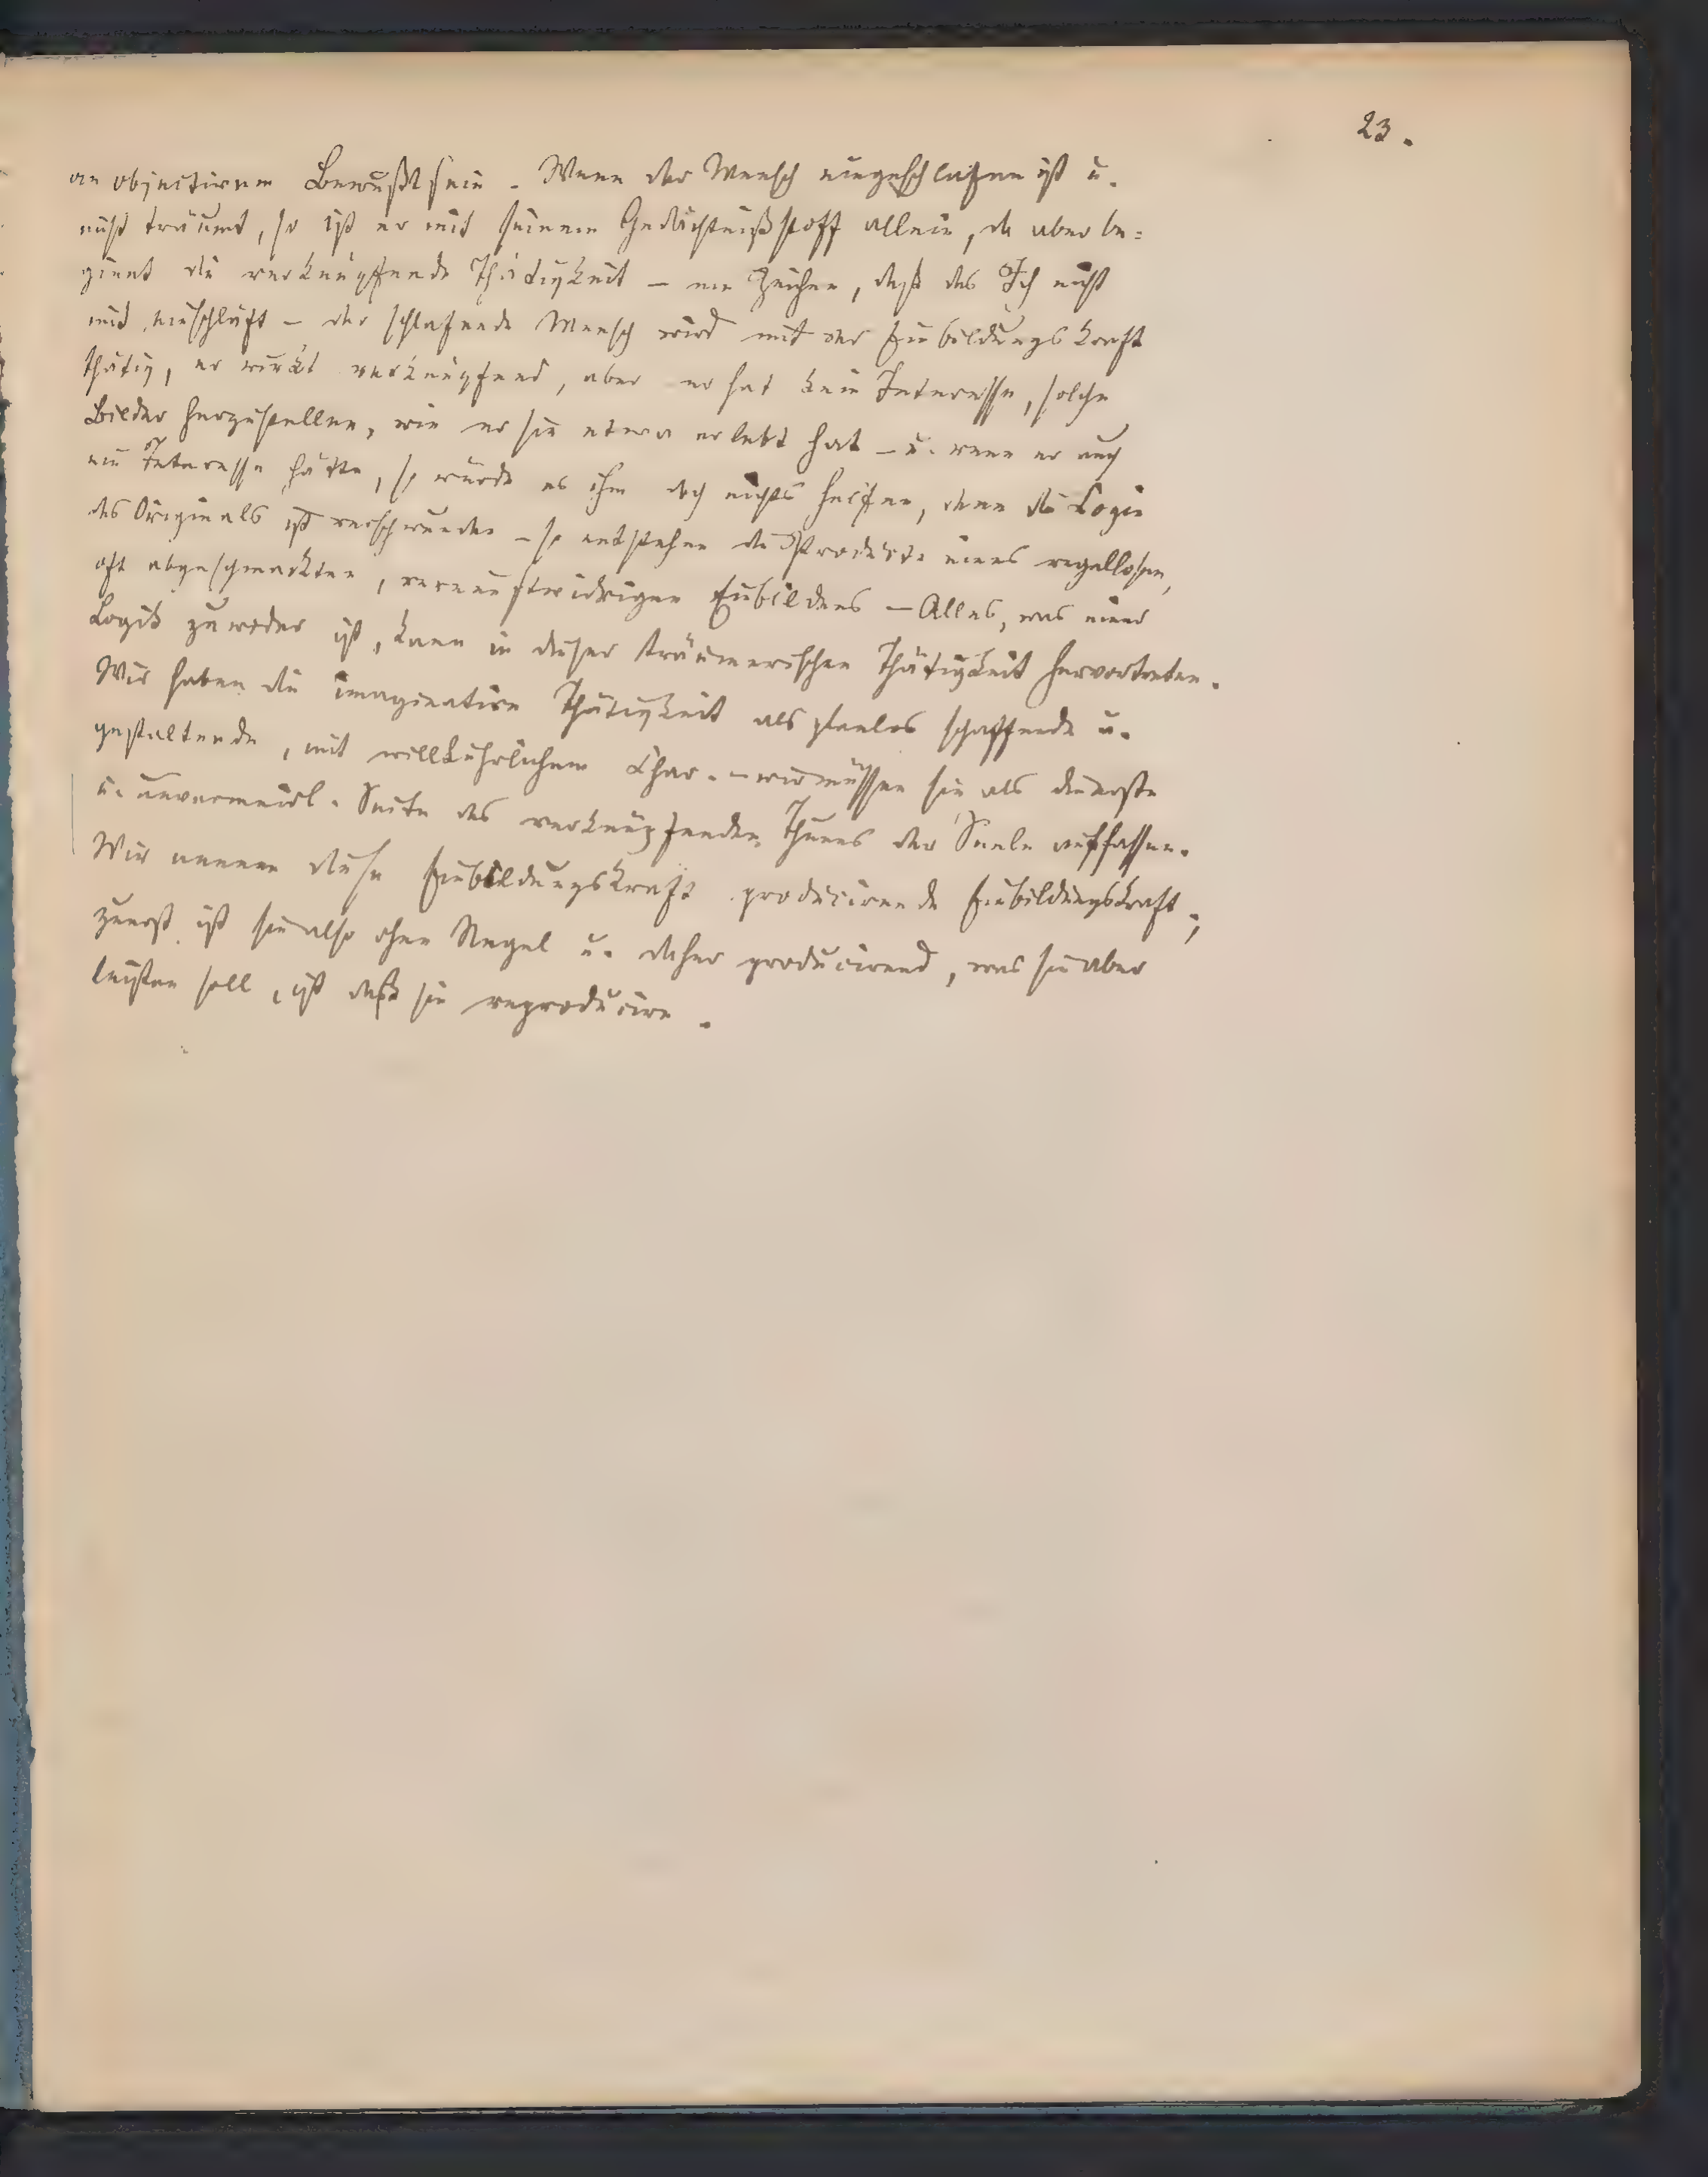 23.
an objectivem Bewußtsein. Wenn der Mensch eingeschlafen ist u.
nicht träumt, so ist er mit seinem Gedächtnißstoff allein, da aber be=
ginnt die verknüpfende Thätigkeit – ein Zeichen, daß das Ich nicht
mit einschläft – der schlafende Mensch wird mit der Einbildungskraft
thätig, er wirkt verknüpfend, aber er hat kein Interesse, solche
Bilder herzustellen, wie er sie etwa erlebt hat – u. wenn er auch
ein Interesse hätte, so würde es ihm doch nichts helfen, denn die Logie
des Originals ist verschwunden – so entstehen die Producte eines regellosen,
oft abgeschmackten, vernunftwidrigen Einbildens – Alles, was einer
Logik zuwider ist, kann in dieser träumerischen Thätigkeit hervortreten.
Wir haben die imaginative Thätigkeit als planlos schaffende u.
gestaltende, mit willkührlichem Char. – wir müssen sie als die erste
u. unvermeidl. Seite des verknüpfenden Thuns der Seele auffassen.
Wir nennen diese Einbildungskraft producirende Einbildungskraft;
zuerst ist sie also ohne Regel u. daher producirend, was sie aber
leisten soll, ist daß sie reproducire.